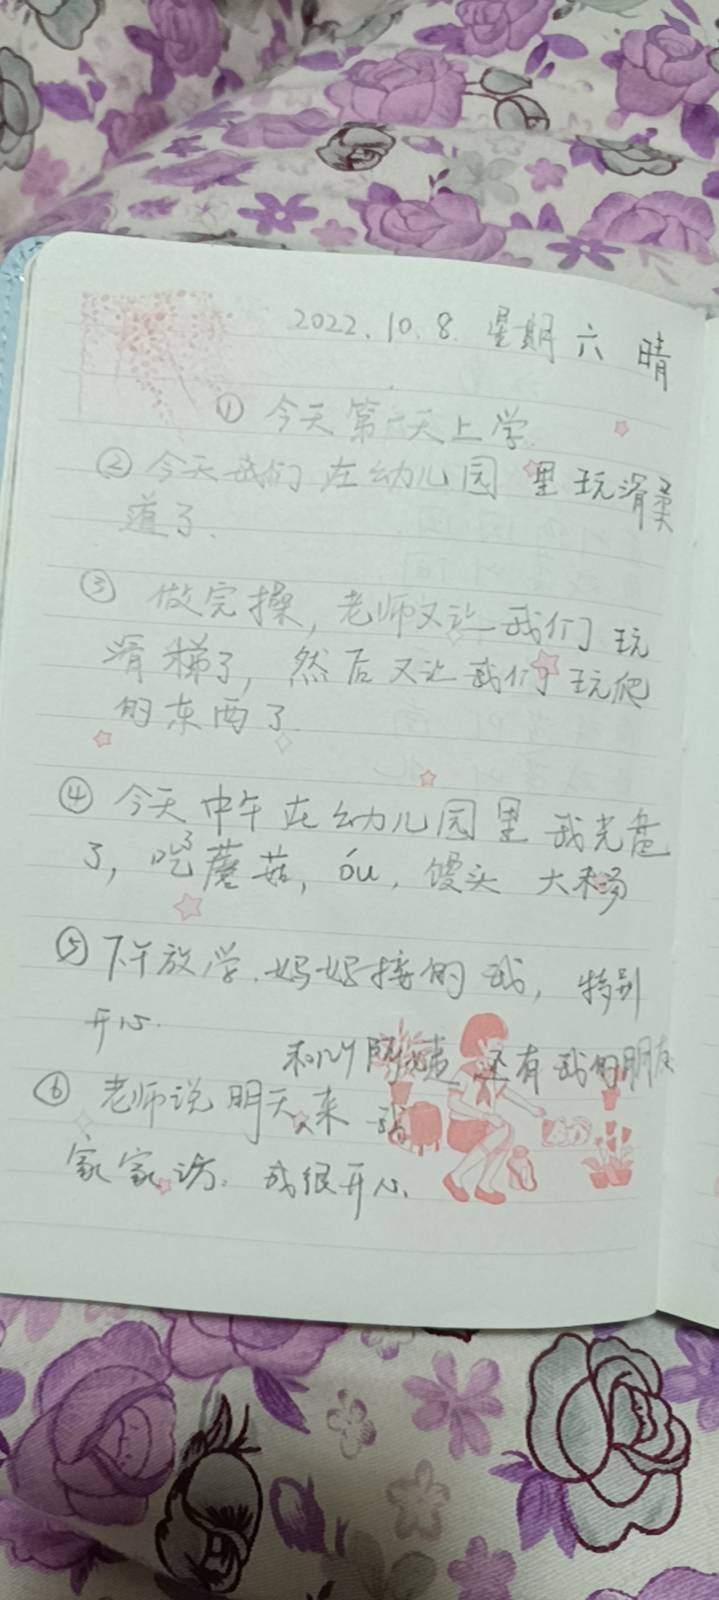 2022.10.8. 星期六 晴
① 今天第一天上学.
② 今天我们在幼儿园里玩滑
道了.
③ 做完操,老师又让我们玩
滑梯了,然后又让我们玩爬
的东西了.
④ 今天中午在幼儿园里我光盘
了,吃了蘑菇,óu,馒头 大米汤
⑤ 下午放学.妈妈接的我,特别
开心.
还有我的朋友
⑥ 老师说明天来我
家家访.我很开心.